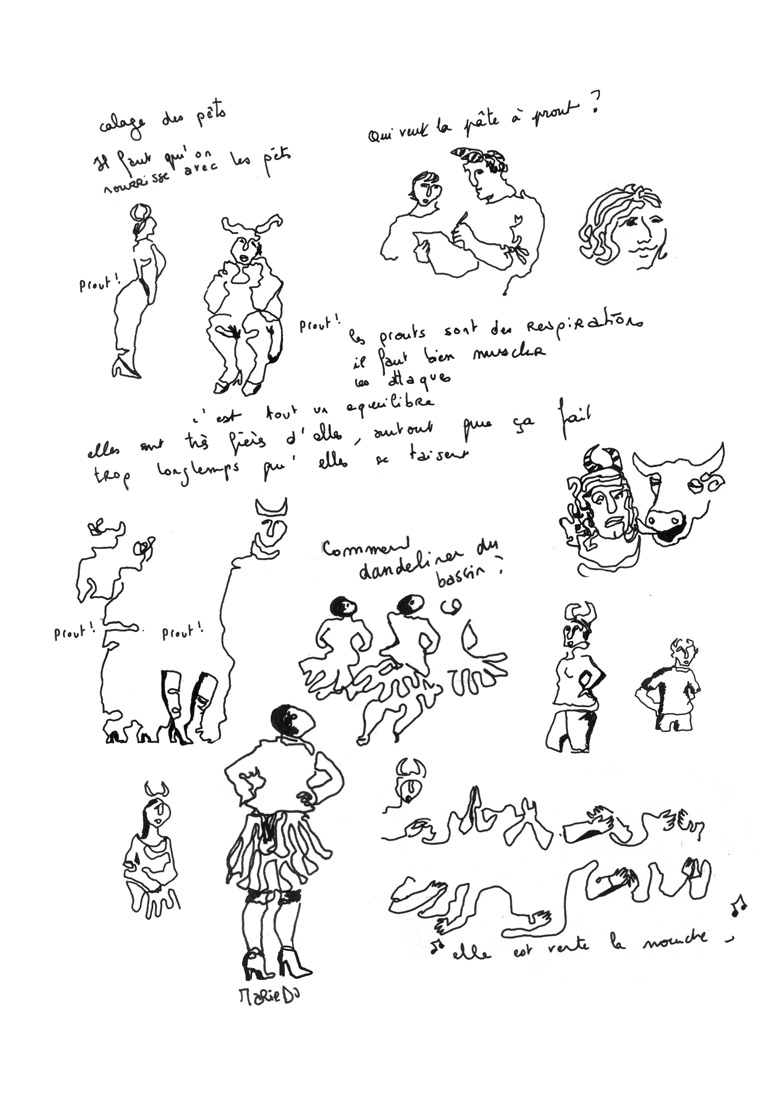 calage des pêts
Il faut qu'on
nourrisse avec les pêts
Qui veut la pâte à prout ?
Prout !
Prout !
les prouts sont des respirations
il faut bien muscler
les attaques
c'est tout un equilibre
elles sont très fières d'elles, surtout que ça fait
trop longtemps qu'elles se taisent
Comment
dandeliner du
bassin ?
Prout !
Prout !
elle est verte la mouche
MARIEDO